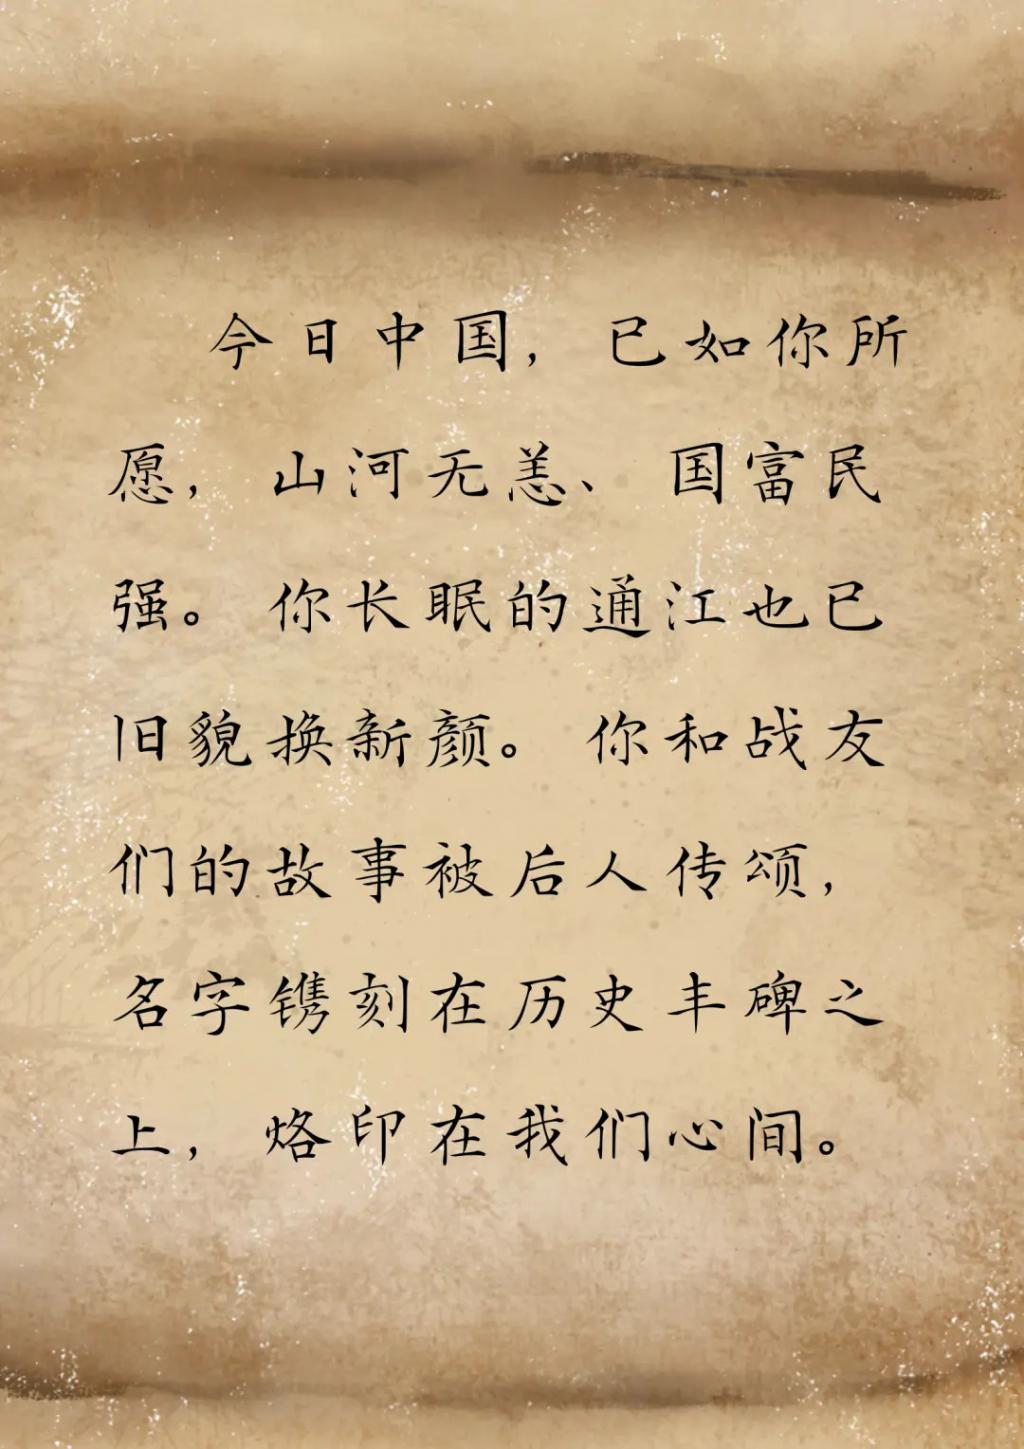 今日中国，已如你所
愿，山河无恙、国富民
强。你长眠的通江也已
旧貌换新颜。你和战友
们的故事被后人传颂，
名字镌刻在历史丰碑之
上，烙印在我们心间。